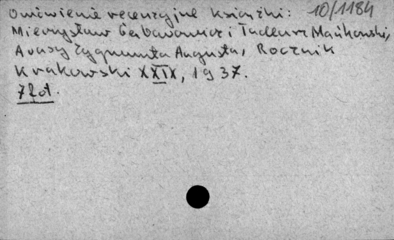 Omówienie recenzyjne książki: 10/1184
Mieczysław Gębarowicz i Tadeusz Mańkowski,
Arasy Zygmunta Augusta, Rocznik
Krakowski XXIX, 1937.